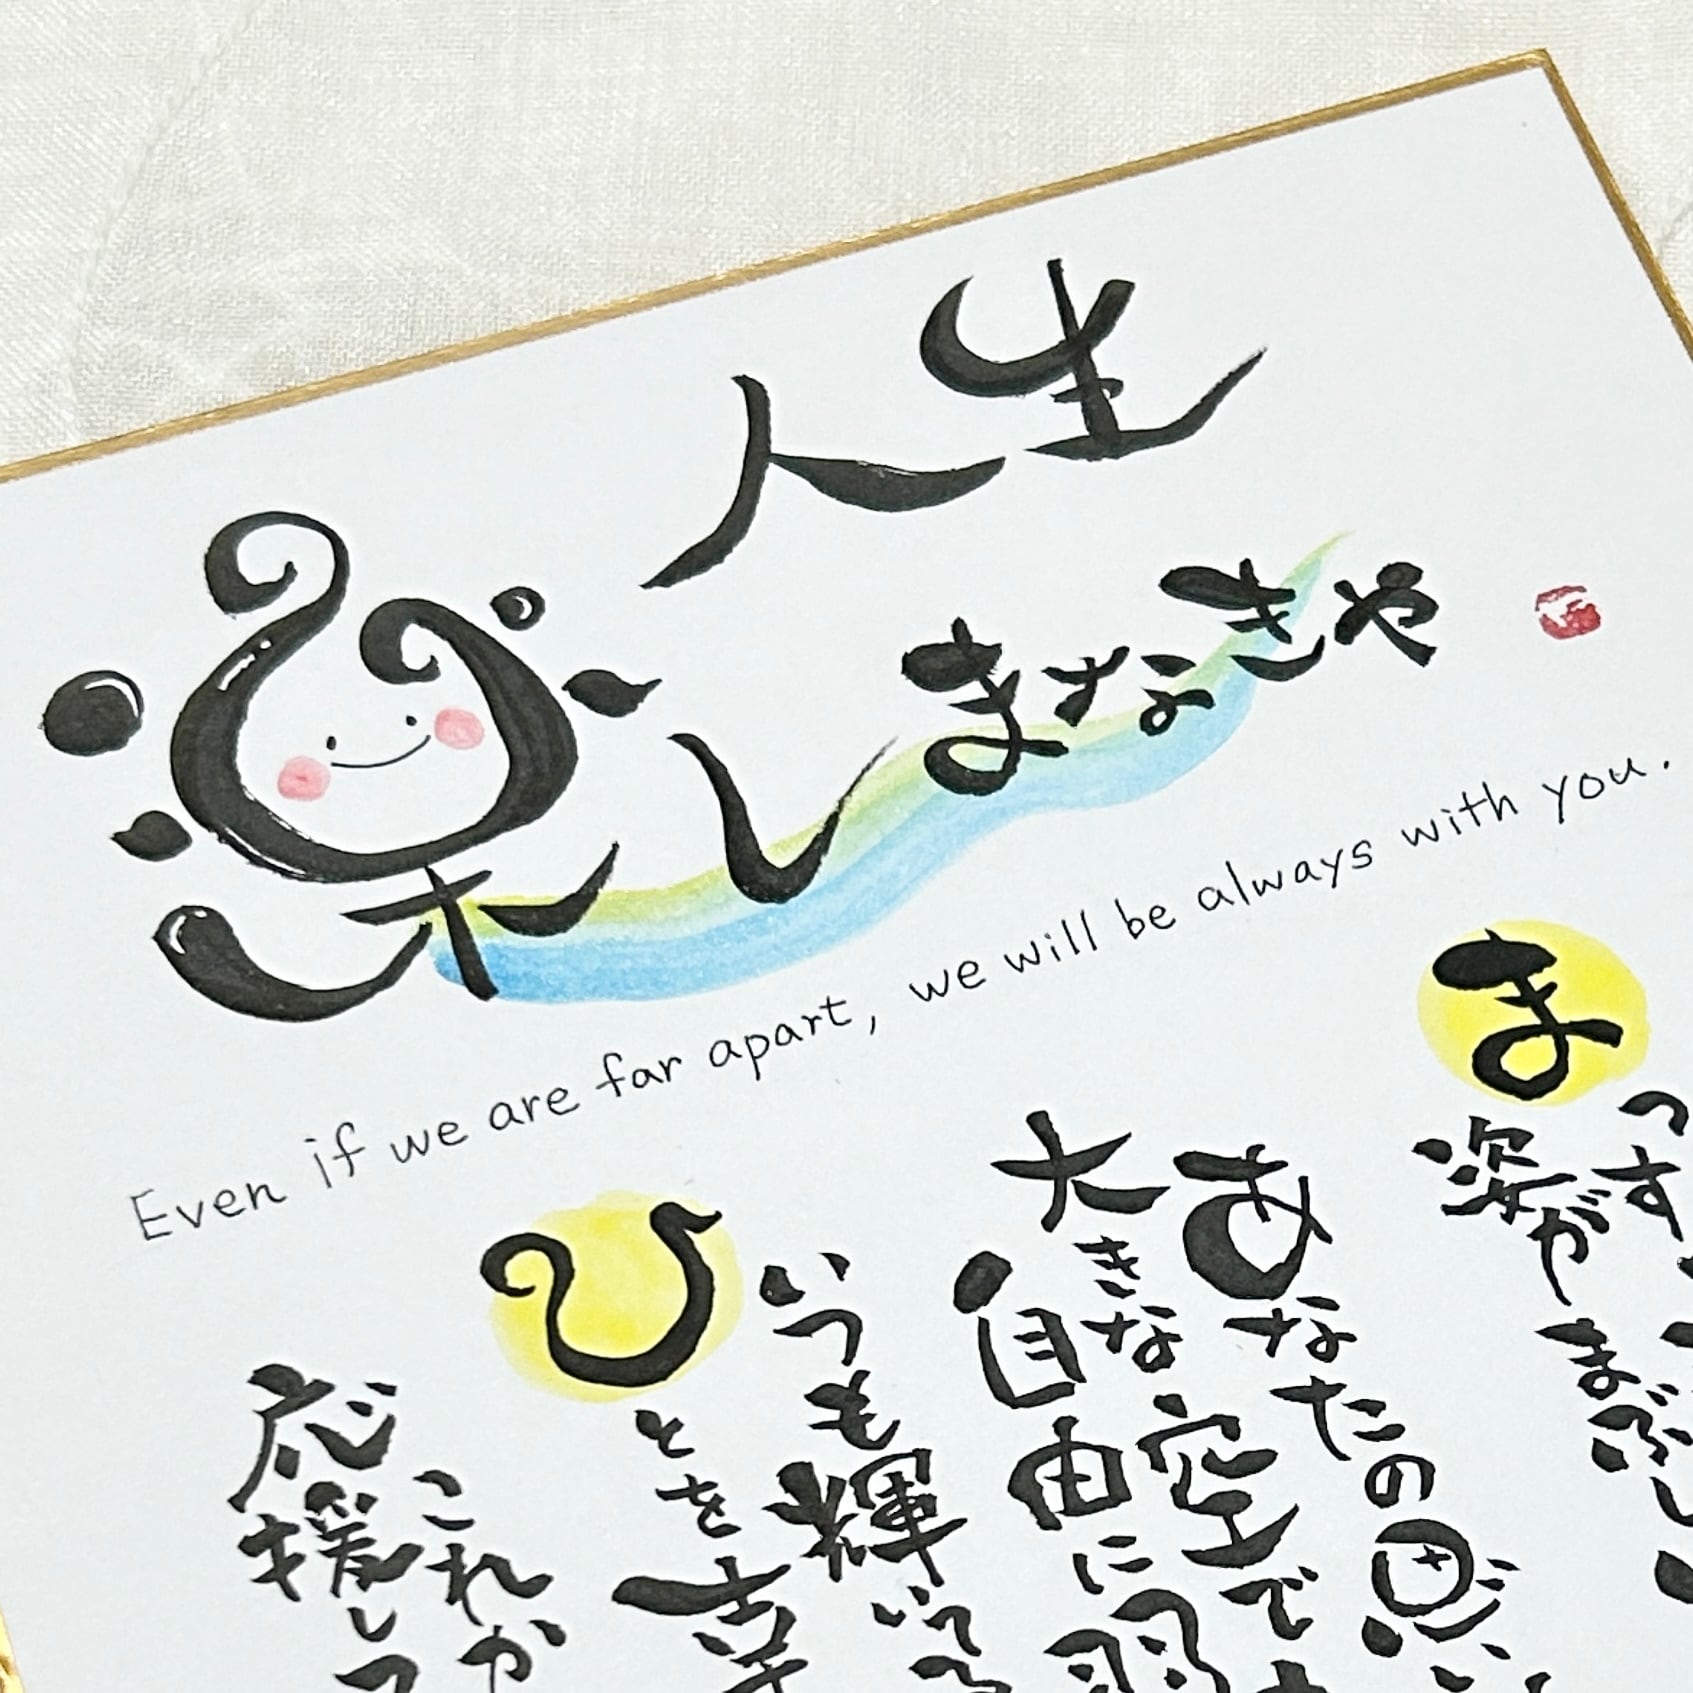 人生
楽しまなきゃ
Even if we are far apart, we will be always with you.
ま
っす
姿が
まぶし
あなたの思い
大きな空で
自由に羽
いつも輝いてる
ひとを幸
これか
応援しつ